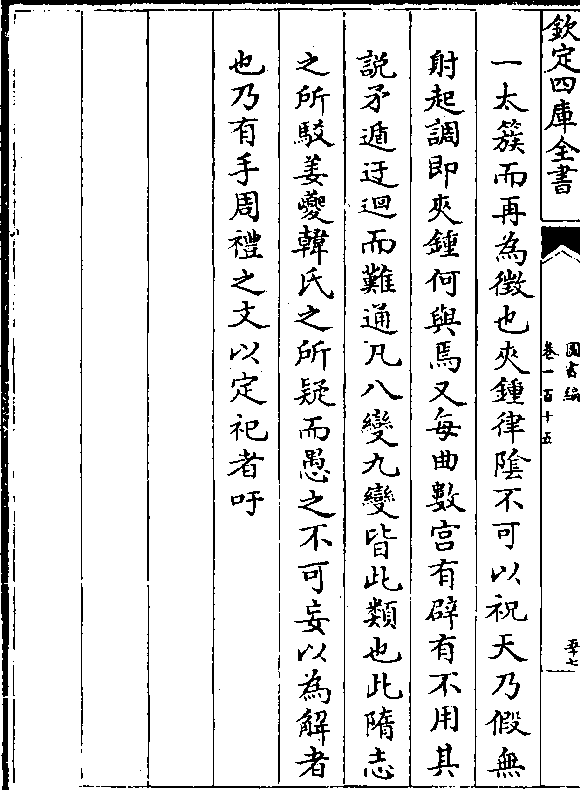 欽定四庫全書
圖書編
卷一百十五
一太簇而再為徵也夾鍾律隂不可以祝天乃假無
射起調即夾鍾何與焉又每曲數宫有辟有不用其
説矛遁迂迴而難通凡八變九變皆此類也此隋志
之所駁姜夔韓氏之所疑而愚之不可妄以為解者
也乃有手周禮之文以定祀者吁